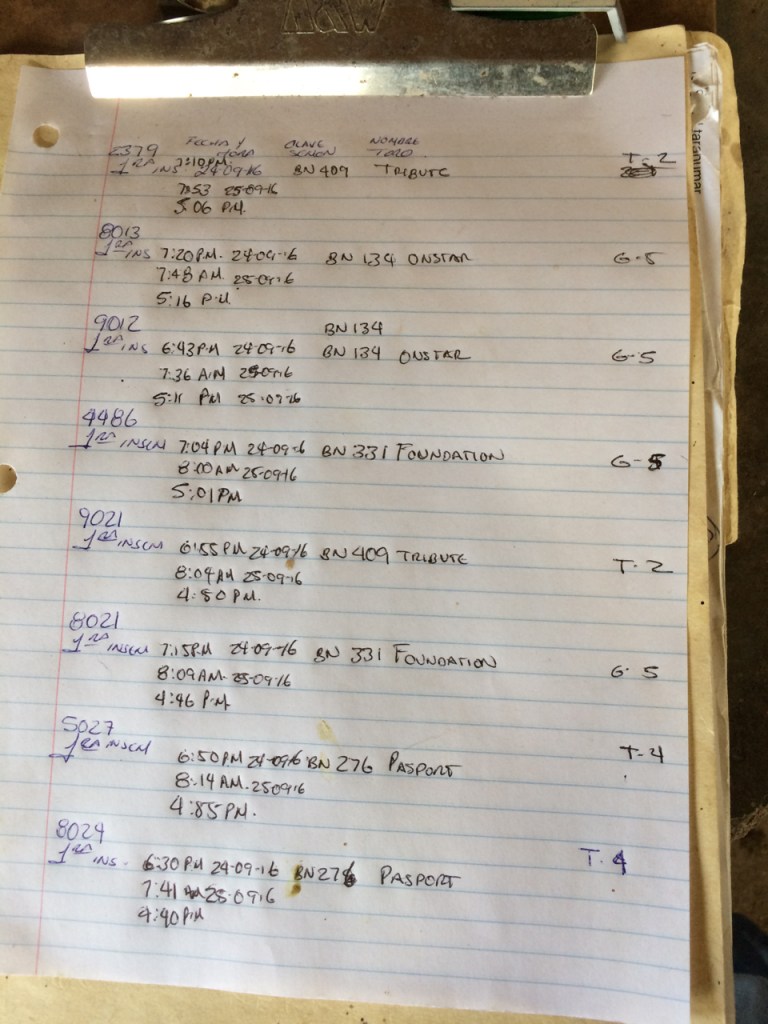 2379 FECHA Y HORA CLAVE SEMEN NOMBRE TORO
7:10 PM.
1RA INS 24-09-16 BN 409 TRIBUTE T-2
7:53 25-09-16
5:06 P.M.
8013
1RA INS 7:20 PM. 24-09-16 BN 134 ONSTAR G-5
7:48 AM 25-09-16
5:16 P.M
9012 BN 134
1RA INS 6:43 P.M 24-09-16 BN 134 ONSTAR G-5
7:36 A.M 25-09-16
5:11 PM 25-09-16
4486
1RA INSCM 7:04 PM 24-09-16 BN 331 FOUNDATION G-5
8:00 AM 25-09-16
5:01 PM
9021
1RA INSCM 6:55 PM 24-09-16 BN 409 TRIBUTE T-2
8:04 AM 25-09-16
4:50 PM.
8021
1RA INSCM 7:15 P.M 24-09-16 BN 331 FOUNDATION G-5
8:09 AM. 25-09-16
4:46 P.M
5027
1RA INSCM 6:50 PM 24-09-16 BN 276 PASPORT T-4
8:14 AM. 25 09 16
4:85 PM.
8024
1RA INS. 6:30 P.M 24-09-16 BN 276 PASPORT T-4
7:41 AM 25-09-16
4:40 P.M